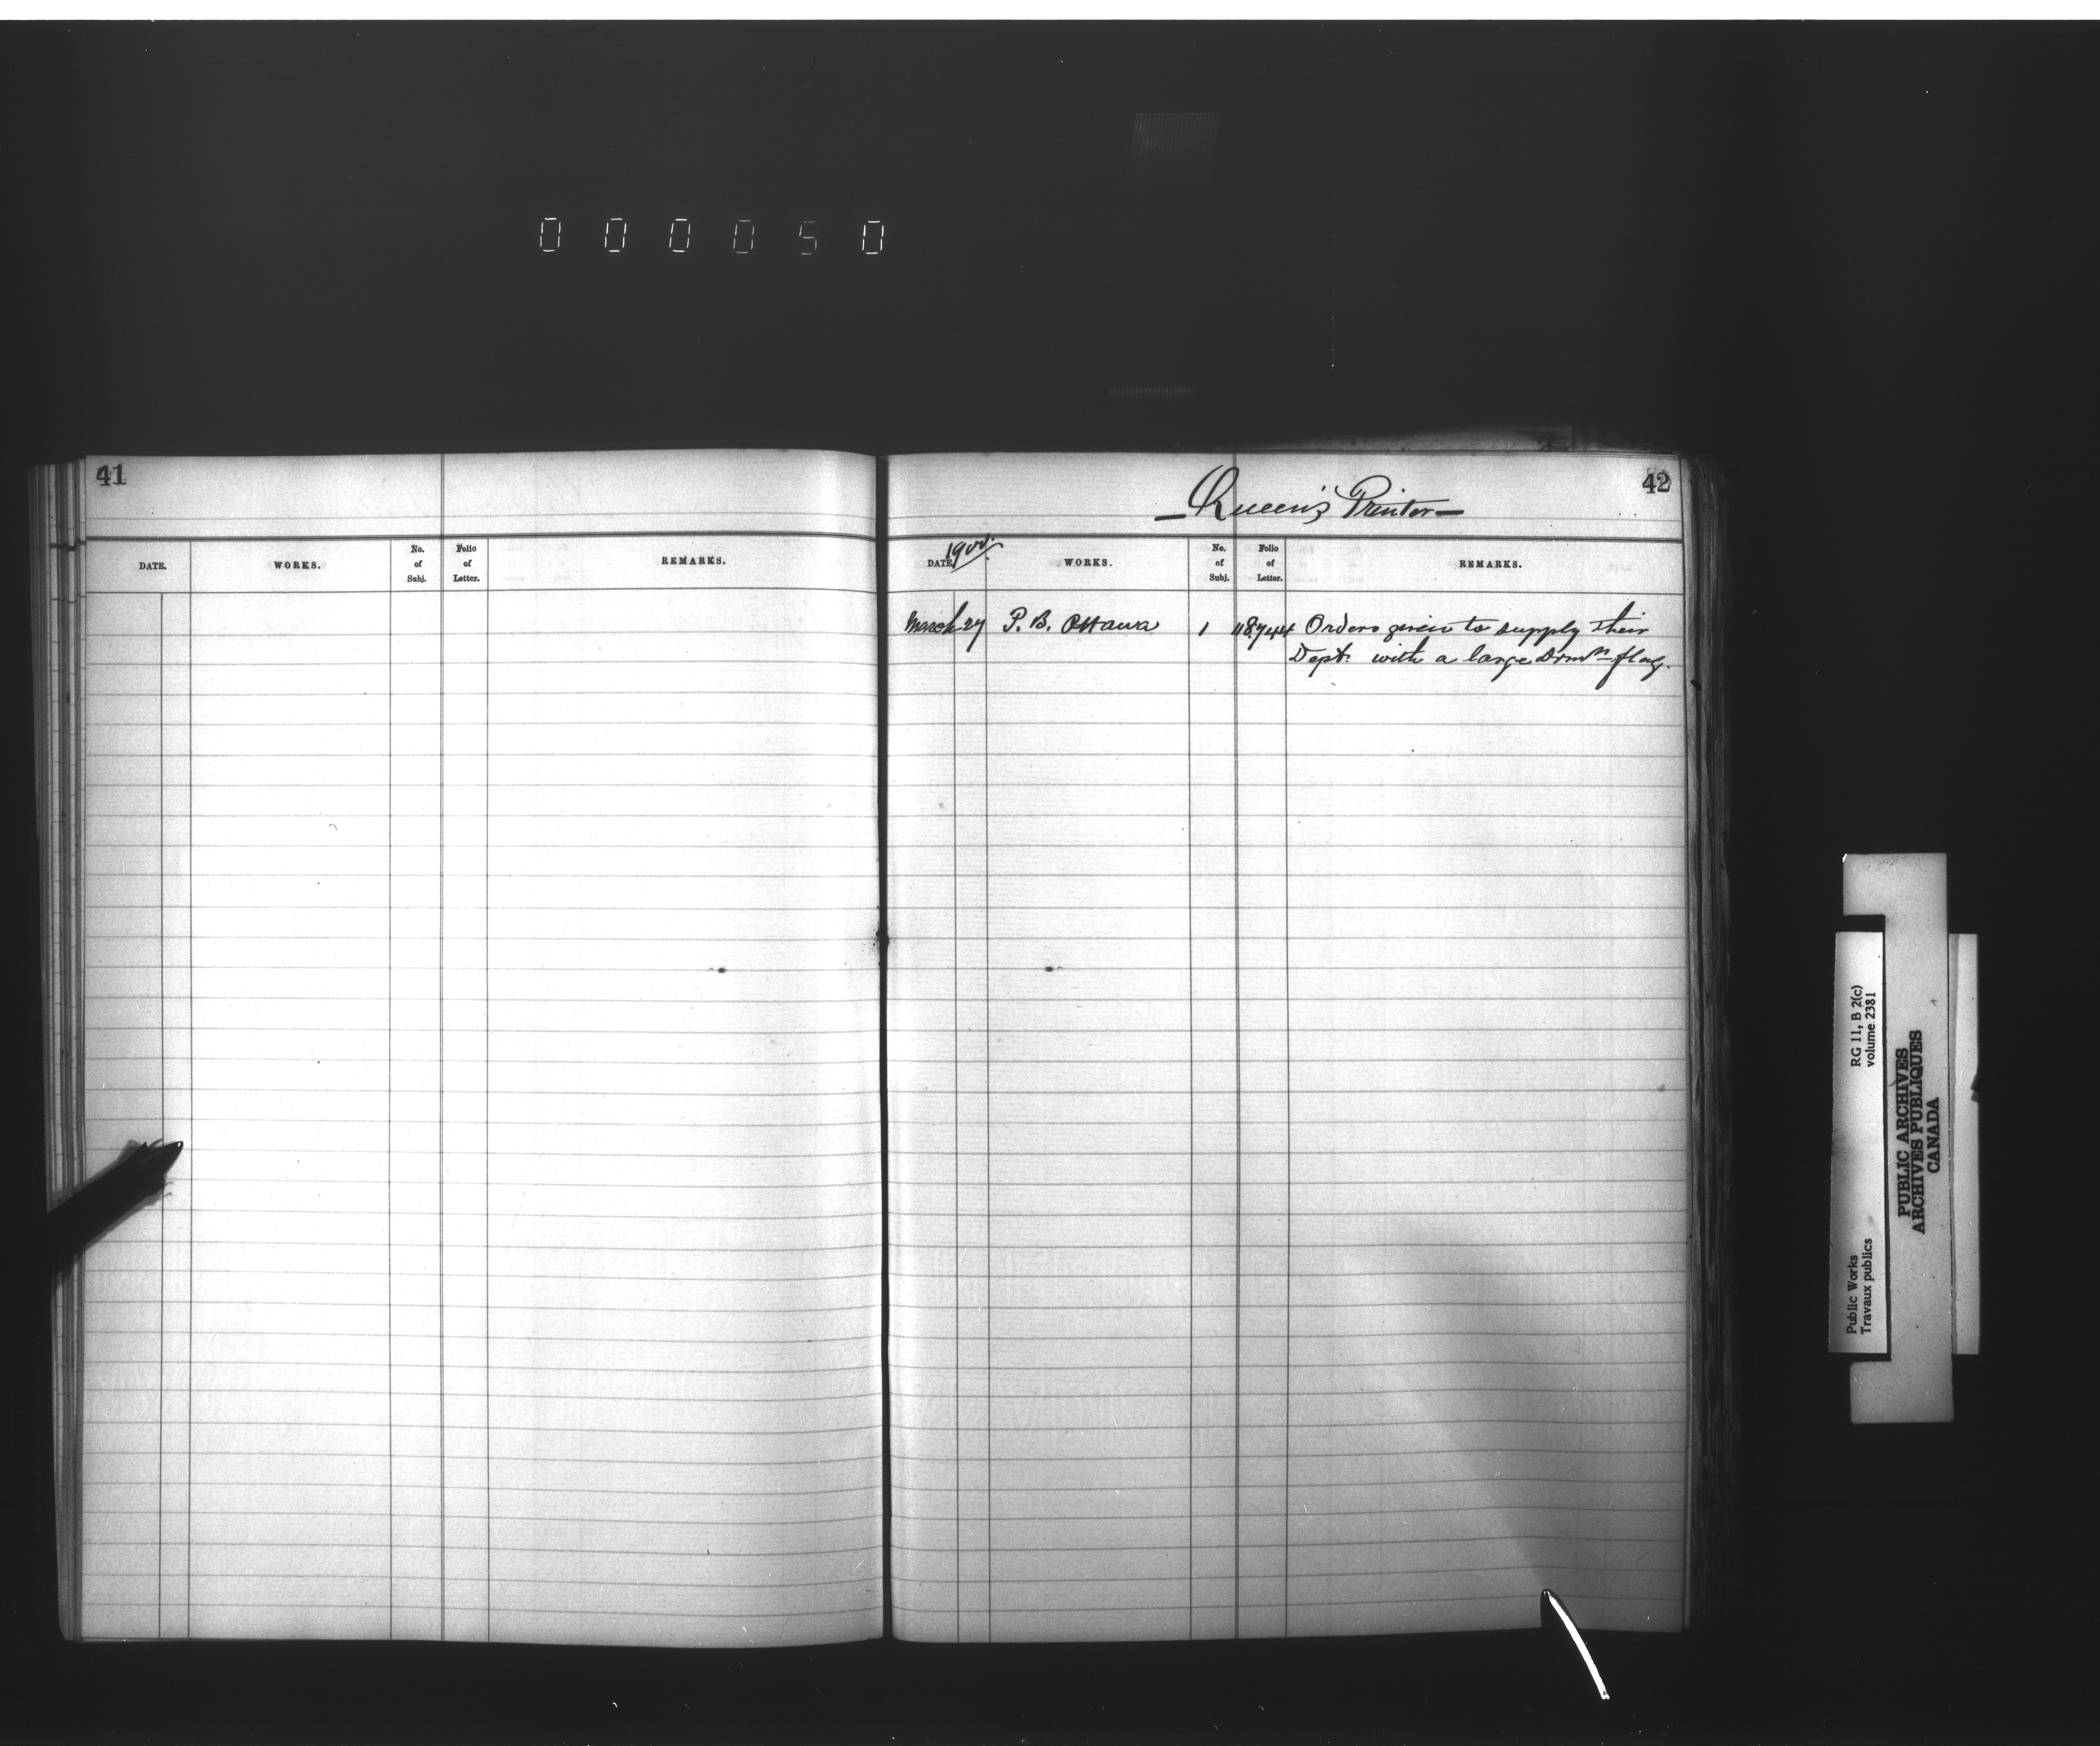 000050
41
DATE. WORKS. No. of Subj. Folio of Letter. REMARKS.
42
— Queen's Printer —
1900.
DATE. WORKS. No. of Subj. Folio of Letter. REMARKS.
March 27 P. B. Ottawa 1 118,744 Orders given to supply their
Dept. with a large Domn flag.
Public Works RG 11, B 2(c)
Travaux publics volume 2381
PUBLIC ARCHIVES
ARCHIVES PUBLIQUES
CANADA